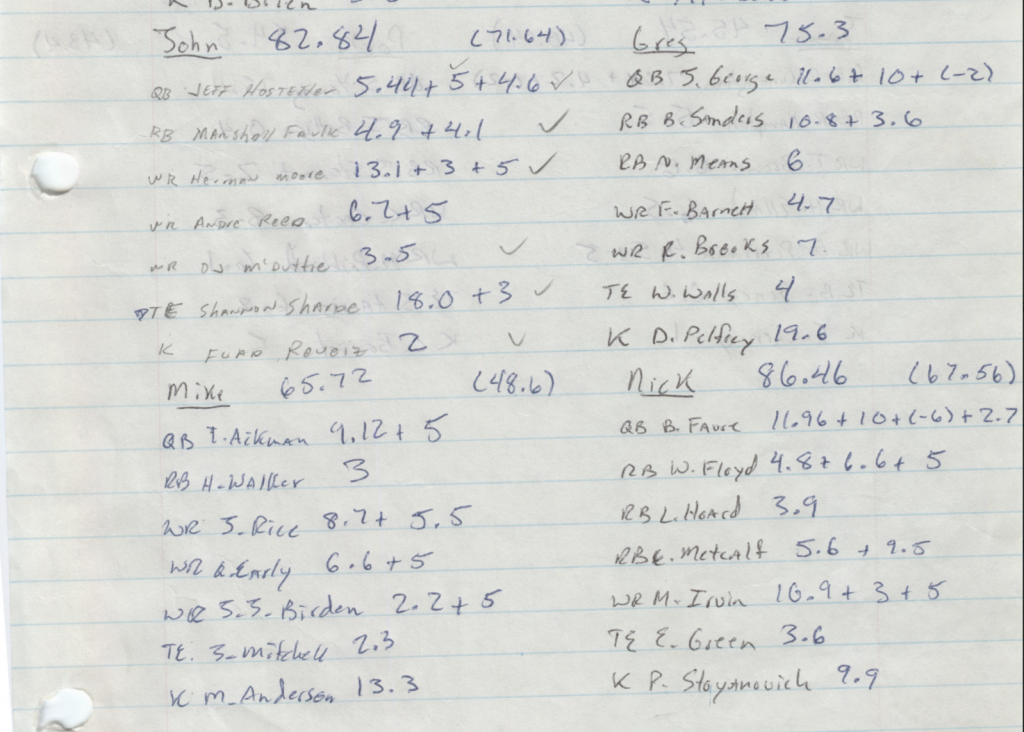 K D. Brien
John 82.84 (71.64)
QB Jeff Hostetler 5.44 + 5 + 4.6 ✓
RB Marshall Faulk 4.9 + 4.1 ✓
WR Herman Moore 13.1 + 3 + 5 ✓
WR Andre Reed 6.7 + 5
WR OJ McDuffie 3.5 ✓
TE Shannon Sharpe 18.0 + 3 ✓
K Fuad Reveiz 2 ✓
Greg 75.3
QB J. George 11.6 + 10 + (-2)
RB B. Sanders 10.8 + 3.6
RB N. Means 6
WR F. Barnett 4.7
WR R. Brooks 7
TE W. Walls 4
K D. Pelfrey 19.6
Mike 65.72 (48.6)
QB T. Aikman 9.12 + 5
RB H. Walker 3
WR J. Rice 8.7 + 5.5
WR Q. Early 6.6 + 5
WR J.J. Birden 2.2 + 5
TE. J. Mitchell 2.3
K M. Anderson 13.3
Nick 86.46 (67.56)
QB B. Favre 11.96 + 10 + (-6) + 2.7
RB W. Floyd 4.8 + 6.6 + 5
RB L. Hoard 3.9
RB E. Metcalf 5.6 + 9.5
WR M. Irvin 10.9 + 3 + 5
TE E. Green 3.6
K P. Stoyanovich 9.9